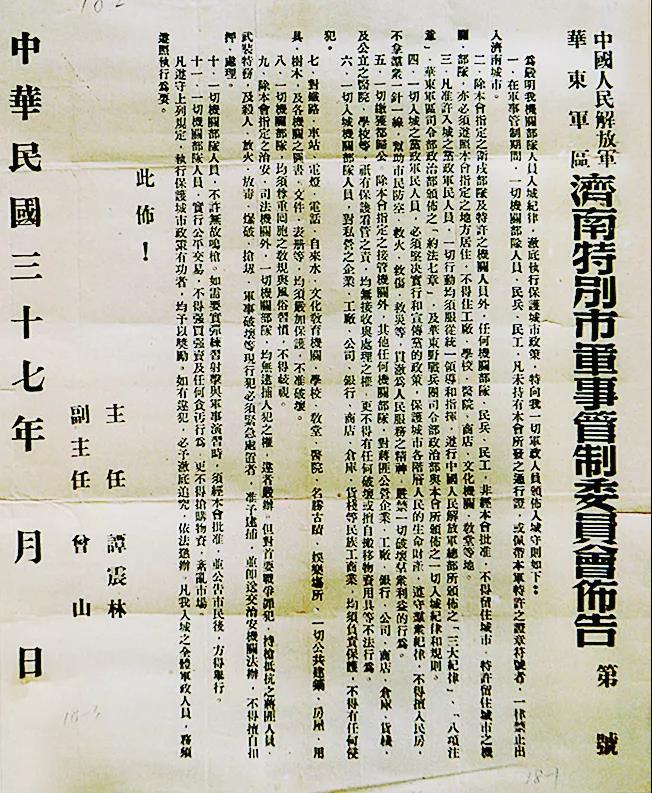 中國人民解放軍
華東軍區
濟南特別市軍事管制委員會佈告 第 號
為嚴明我機關部隊人員入城紀律，澈底執行保護城市政策，特向我一切軍政人員頒佈入城守則如下：
一．在軍事管制期間，一切機關部隊人員、民兵、民工，凡未持有本會所發之通行證，或佩帶本軍特許之證章符號者，一律禁止出
入濟南城市。
二．除本會指定之衛戍部隊及特許之機關人員外，任何機關部隊、民兵、民工，非經本會批准，不得留住城市，特許留住城市之機
關、部隊，亦必須遵照本會指定之地方居住，不得住工廠、學校、醫院、商店、文化機關、敎堂等地。
三．凡准許入城之黨政軍民人員，一切行動均須服從統一領導和指揮，遵行中國人民解放軍總部所頒佈之「三大紀律」、「八項注
意」，華東軍區司令部政治部頒佈之「約法七章」，及華東野戰兵團司令部政治部與本會所頒佈之一切入城紀律和規則。
四．一切入城之黨政軍民人員，必須堅決實行和宣傳黨的政策，保護城市各階層人民的生命財產，遵守羣衆紀律，不得擅入民房，
不拿羣衆一針一線，幫助市民防空、救火、救傷、救災等，貫澈為人民服務之精神，嚴禁一切破壞佔衆利益的行為。
五．一切繳獲都歸公。除本會指定之接管機關外，其他任何機關部隊，對蔣匪公營企業、工廠、銀行、公司、商店、倉庫、貨棧，
及公立之醫院、學校等，祇有保護看管之責，均無接收與處理之權，更不得有任何破壞或擅自搬移物資用具等不法行為。
六．一切入城機關部隊人員，對私營之企業、工廠、公司、銀行、商店、倉庫、貨棧等民族工商業，均須負責保護，不得有任何侵
犯。
七．對鐵路、車站、電燈、電話、自來水、文化敎育機關、學校、敎堂、醫院、名勝古蹟、娛樂塲所、一切公共建築、房屋、用
具、樹木，及各機關之圖書、文件、表册等，均須嚴加保護，不准破壞。
八．一切機關部隊，均須尊重回胞之敎規與風俗習慣，不得歧視。
九．除本會指定之治安、司法機關外，一切機關部隊，均無逮捕人犯之權，違者嚴辦。但對首要戰爭罪犯，持槍抵抗之蔣匪人員，
武裝特務，及殺人、放火、放毒、爆破、搶刼、軍事破壞等現行犯必須緊急處置者，准予逮捕，並卽送交治安機關法辦，不得擅自扣
押、處理。
十．一切機關部隊人員，不許無故鳴槍。如需要實彈練習射擊與軍事演習時，須經本會批准，並公告市民後，方得舉行。
十一．一切機關部隊人員，實行公平交易，不得強買強賣及任何貪汚行為，更不得搶購物資，紊亂市場。
凡遵守上列規定，執行保護城市政策有功者，均予以獎勵。如有違犯，必予澈底追究，依法懲辦。凡我入城之全體軍政人員，務須
遵照執行為要。
此佈！
主任 譚震林
副主任 曾山
中華民國三十七年 月 日
18-3
18-1